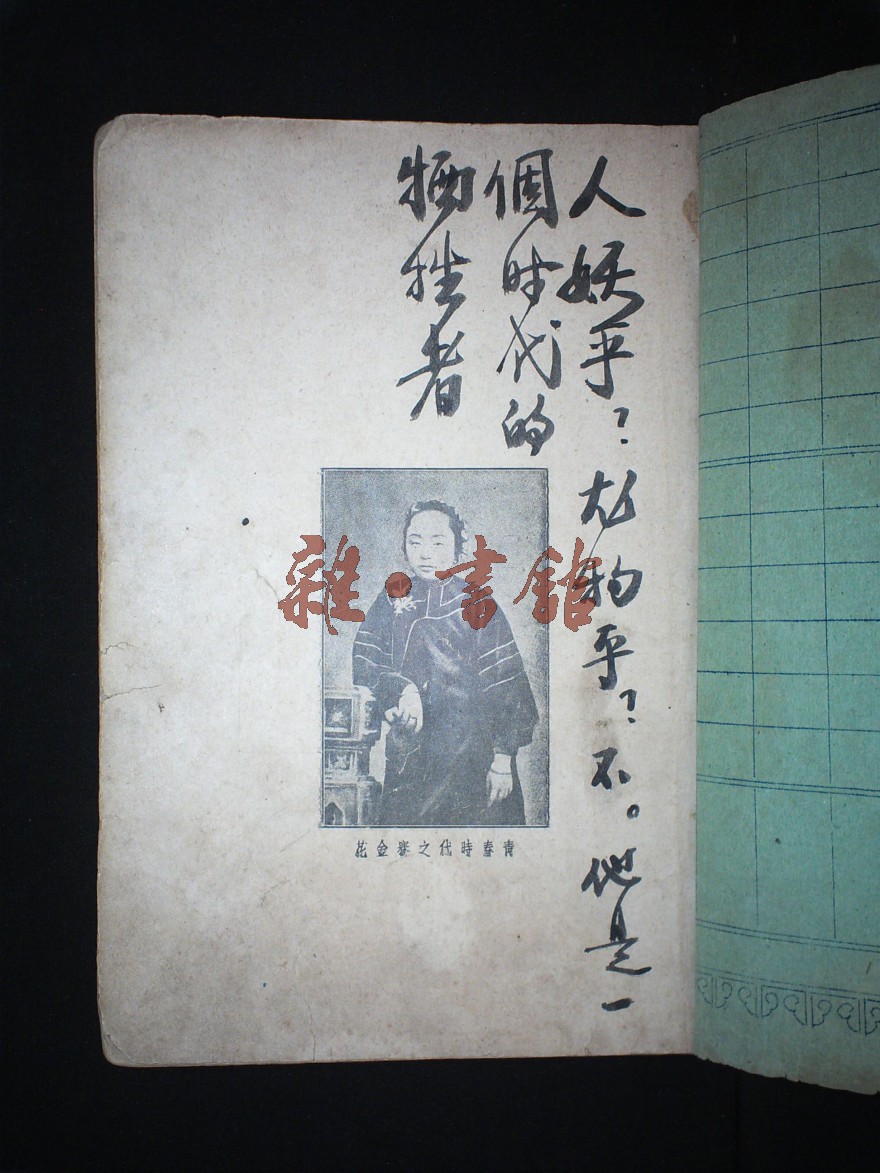 人妖乎？尤物乎？不。他是一
個时代的
牺牲者
雜·書館
青春時代之賽金花